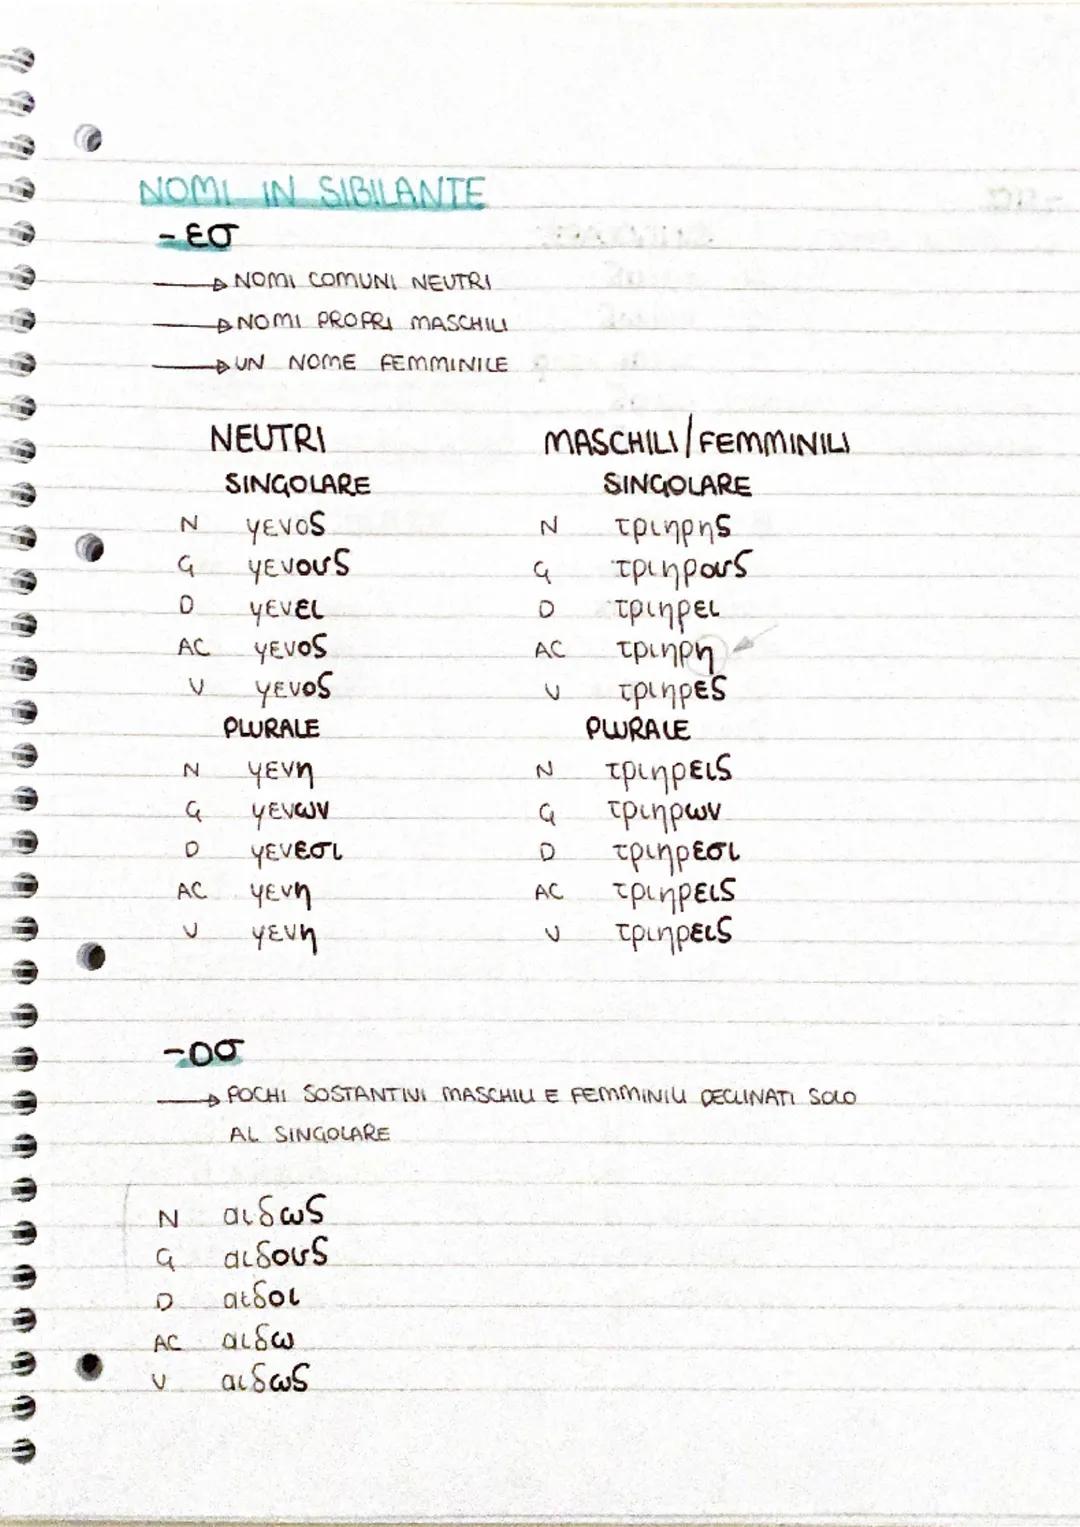 NOMI IN SIBILANTE
-εσ
→ NOMI COMUNI NEUTRI
→ NOMI PROPRI MASCHILI
→ UN NOME FEMMINILE
NEUTRI MASCHILI/FEMMINILI
SINGOLARE SINGOLARE
N γενος N τριηρης
G γενους G τριηρους
D γενει D τριηρει
AC γενος AC τριηρη
V γενος V τριηρες
PLURALE PLURALE
N γενη N τριηρεις
G γενων G τριηρων
D γενεσι D τριηρεσι
AC γενη AC τριηρεις
V γενη V τριηρεις
-οσ
→ POCHI SOSTANTIVI MASCHILI E FEMMINILI DECLINATI SOLO
AL SINGOLARE
N αιδως
G αιδους
D αιδοι
AC αιδω
V αιδως